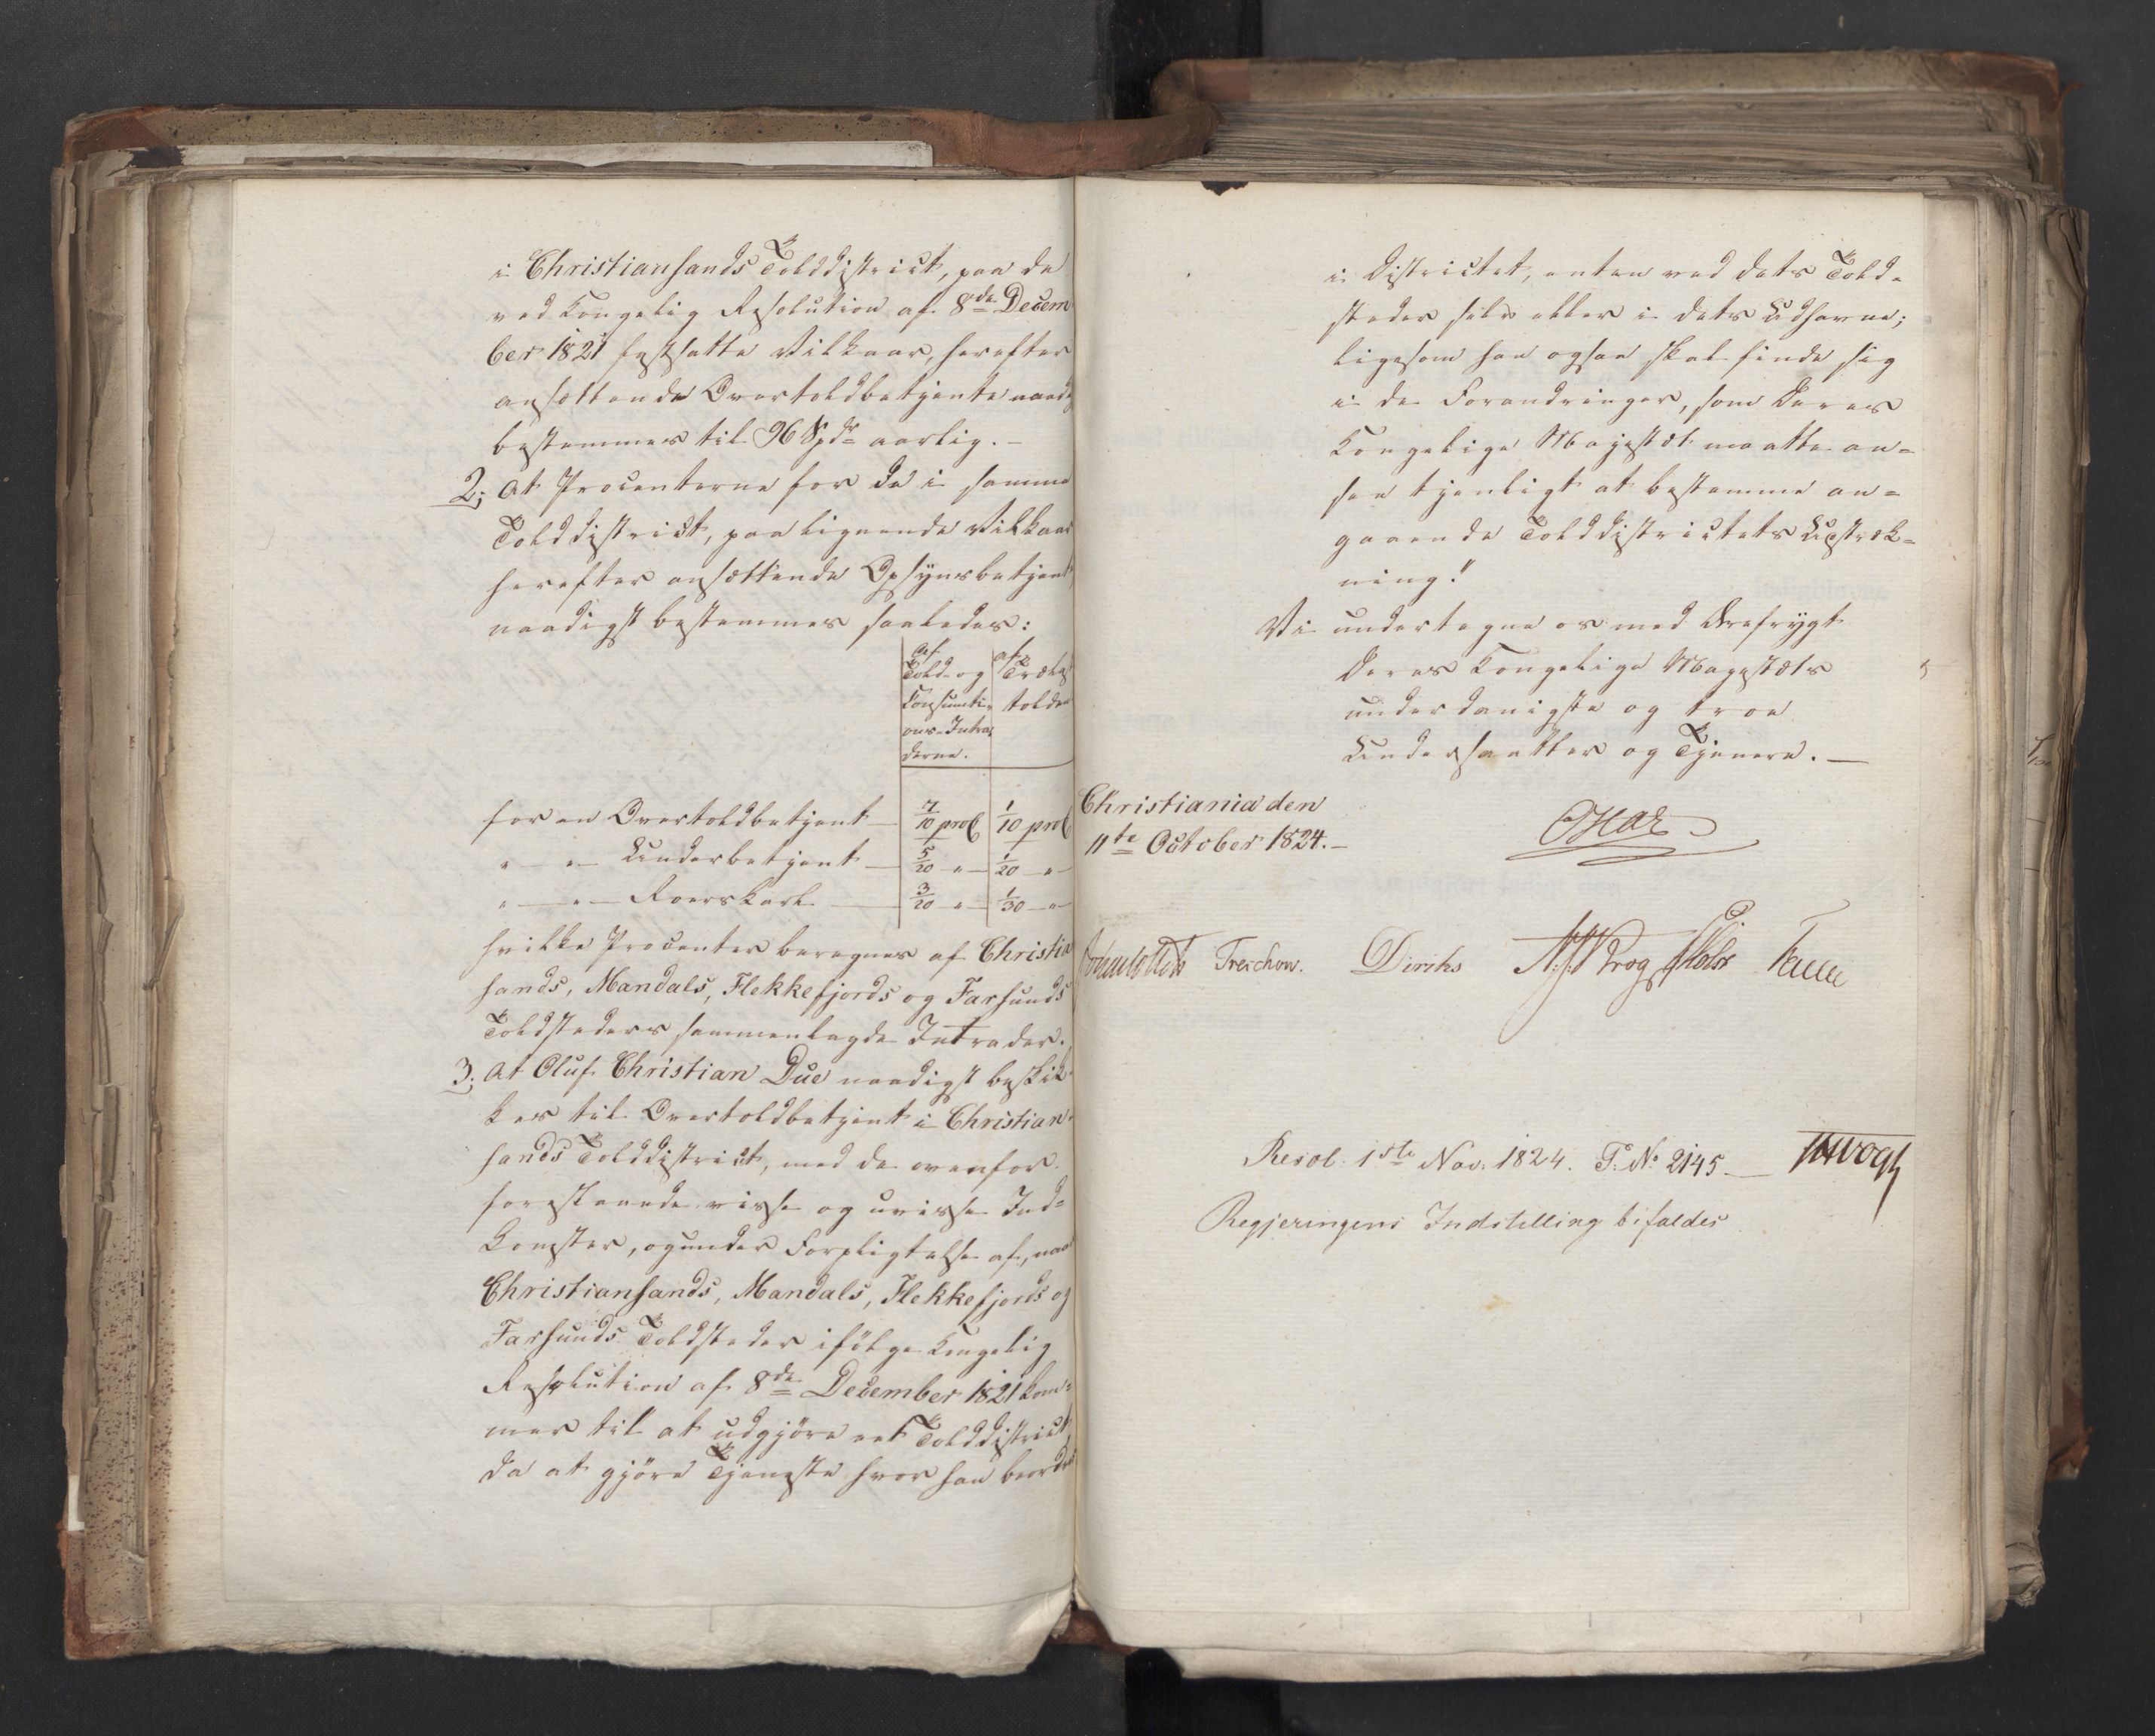 i Christiansands Tolddistrict, paa de
ved Kongelig Resolution af 8de Decem
ber 1821 fastsatte Vilkaar, herefter
ansættende Overtoldbetjente naadigst
bestemmes til 96 Spdr aarlig.-
2; At Procenterne for de i samme
Tolddistrict, paa lignende Vilkaar
herefter ansættende Opsynsbetjente
naadigst bestemmes saaledes:
af Told- og Consumtions-Intraderne. | af Trælasttolden
for en Overtoldbetjent 7/10 proC 1/10 proC
" — " — Underbetjent — 5/20 " — 1/20 "
" — " — Roerskarl — 3/20 " — 1/30 "
hvilke Procenter beregnes af Christian
sands, Mandals, Flekkefjords og Farsunds
Toldsteders sammenlagde Intrader.
3; At Oluf Christian Due naadigst beskik-
kes til Overtoldbetjent i Christian-
sands Tolddistrict, med de ovenfor
forestaaende visse og uvisse Ind-
komster, og under Forpligtelse af, naar
Christiansands, Mandals, Flekkefjords og
Farsunds Toldsteder ifölge Kongelig
Resolution af 8de December 1821 kom-
mer til at udgjöre eet Tolddistrict,
da at gjöre Tjeneste hvor han beordres
i Districtet, enten ved dets Told-
steder selv eller i dets Udhavne;
ligesom han ogsaa skal finde sig
i de Forandringer, som Deres
Kongelige Majestæt maatte an-
see tjenligt at bestemme an-
gaaende Tolddistrictets Udstræk-
ning."
Vi undertegne os med Ærefrygt
Deres Kongelige Majestæts
underdanigste og troe
Undersaatter og Tjenere. —
Christiania den
11te October 1824.-
Sommerfeldt Treschow. Diriks Krog Fasting
Resol. 1ste Nov. 1824. P. No 2145 — Vogt
Regjeringens Indstilling bifaldes